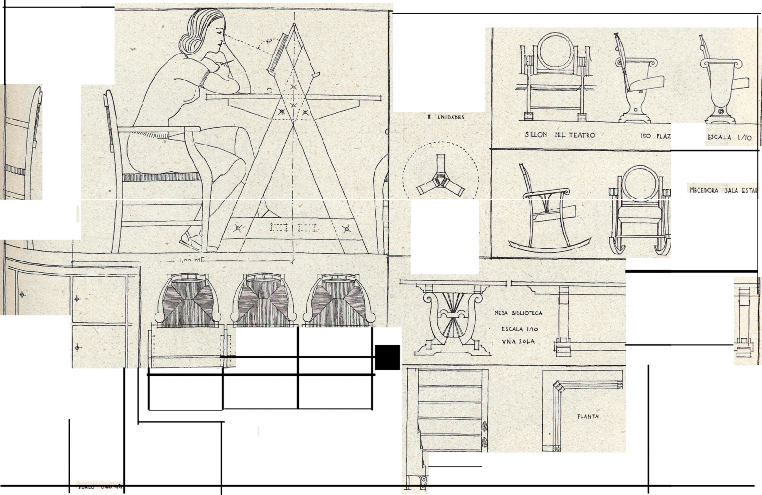 8 UNIDADES
SILLON DEL TEATRO
150 PLAZ
ESCALA 1/10
MECEDORA SALA ESTAR
1,00 MT
MESA BIBLIOTECA
ESCALA 1/10
UNA SOLA
PLANTA